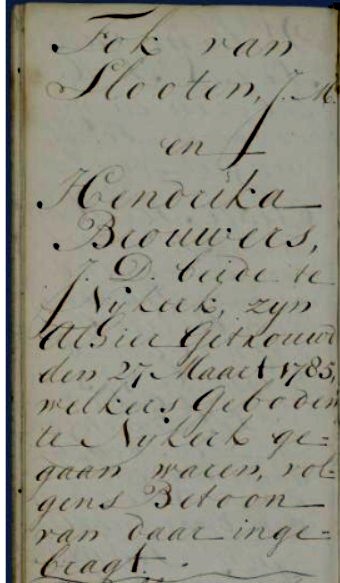 Fok van
Slooten, J. M.
en
Hendrika
Brouwers,
J. D. beide te
Nykerk, zyn
Alhier Getrouwd
den 27 Maart 1785,
welkers Geboden
te Nykerk ge=
gaan waren, vol=
gens Betoon
van daar inge=
bragt.